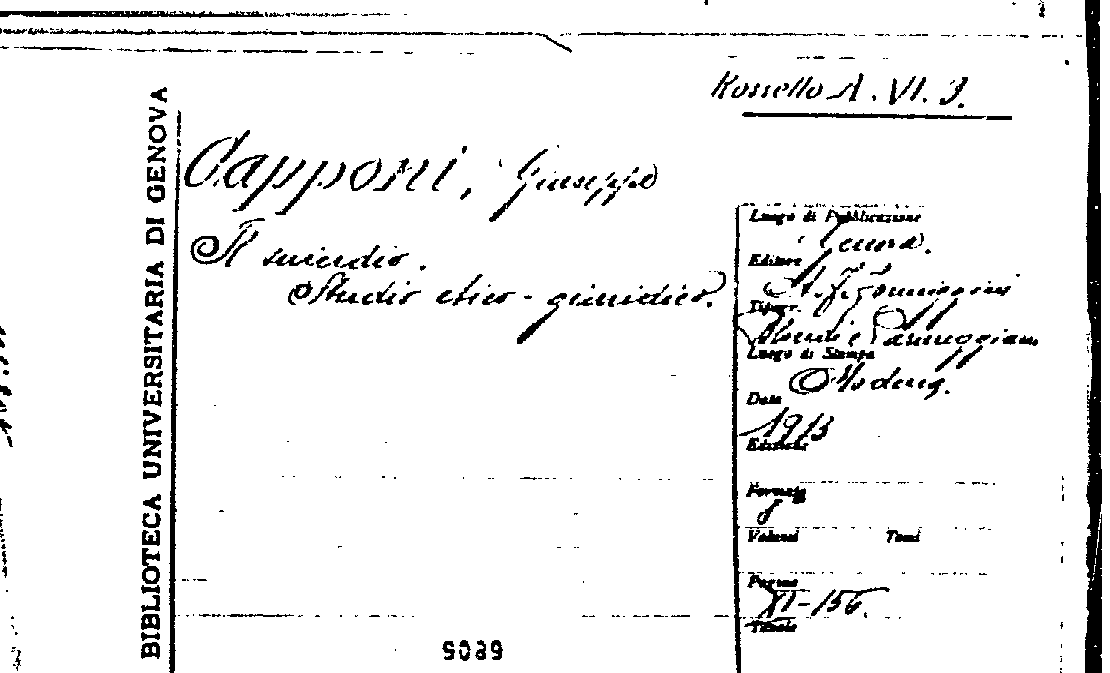 Rossello A. VI. 3.
BIBLIOTECA UNIVERSITARIA DI GENOVA
Capponi, Giuseppe
Il suicidio.
Studio etico-giuridico.
Luogo di Pubblicazione
Genova.
Editore
A. F. Formiggini
Tipogr.
Blondi e Parmeggiani
Luogo di Stampa
Modena.
Data
1913
Edizione
Formato
8
Volumi Tomi
Pagine
XI-156.
Titolo